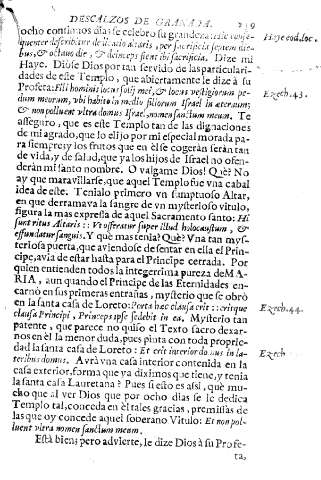 DESCALZOS DE GRANADA.
ocho continuos dias se celebrò su grandeza:
quenter describitur de ritu altaris, per sacrificia septem die-
bus, & octavo die, & deinceps fient ibi sacrificia. Dize mi
Haye. Dióse Dios por tan servido de las particulari-
dades de este Templo, que abiertamente le dize à su
Profeta: Fili hominis locus solij mei, & locus vestigiorum pe-
dum meorum, vbi habito in medio filiorum Israel in aternum;
& non polluent vltra domus Israel, nomen sanctum meum. Te
asseguro, que es este Templo tan de las dignaciones
de mi agrado, que lo elijo por mi especial morada pa-
ra siempre, y los frutos que en èl se cogeràn seràn tan
de vida, y de salud, que ya los hijos de Israel no ofen-
deràn mi santo nombre. O valgame Dios! Què? No
ay que maravillarse, que aquel Templo fue vna cabal
idea de este. Tenia lo primero vn sumptuoso Altar,
en que derramava la sangre de vn mysterioso vitulo,
figura la mas expressa de aquel Sacramento santo: Hi
sunt ritus Altaris:: Vt offeratur super illud holocaustum, &
effundatur sanguis. Y què mas tenia? Què? Vna tan mys-
teriosa puerta, que aviendose de sentar en ella el Prin-
cipe, avia de estar hasta para el Principe cerrada. Por
quien entienden todos la integerrima pureza de MA-
RIA, aun quando el Principe de las Eternidades en-
carnò en sus primeras entrañas, mysterio que se obrò
en la santa casa de Loreto: Porta hæc clausa erit:: eritque
clausa Principi, Princeps ipse sedebit in ea, Mysterio tan
patente, que parece no quiso el Texto sacro dexar-
nos en èl la menor duda, pues pinta con toda proprie-
dad la santa casa de Loreto: Et erit interior domus in la-
teribus domus. Avrà vna casa interior contenida en la
casa exterior, forma que ya diximos que tiene, y tenia
la santa casa Lauretana? Pues si esto es assi, què mu-
cho que al ver Dios que por ocho dias se le dedica
Templo tal, conceda en èl tales gracias, premissas de
las que oy concede aquel soberano Vitulo: Et non pol-
luent vltra nomen sanctum meum.
Està bien pero advierte, le dize Dios à su Profe-
ta,
Haye cod. loc.
Ezech. 43.
Ezech. 44.
Ezech